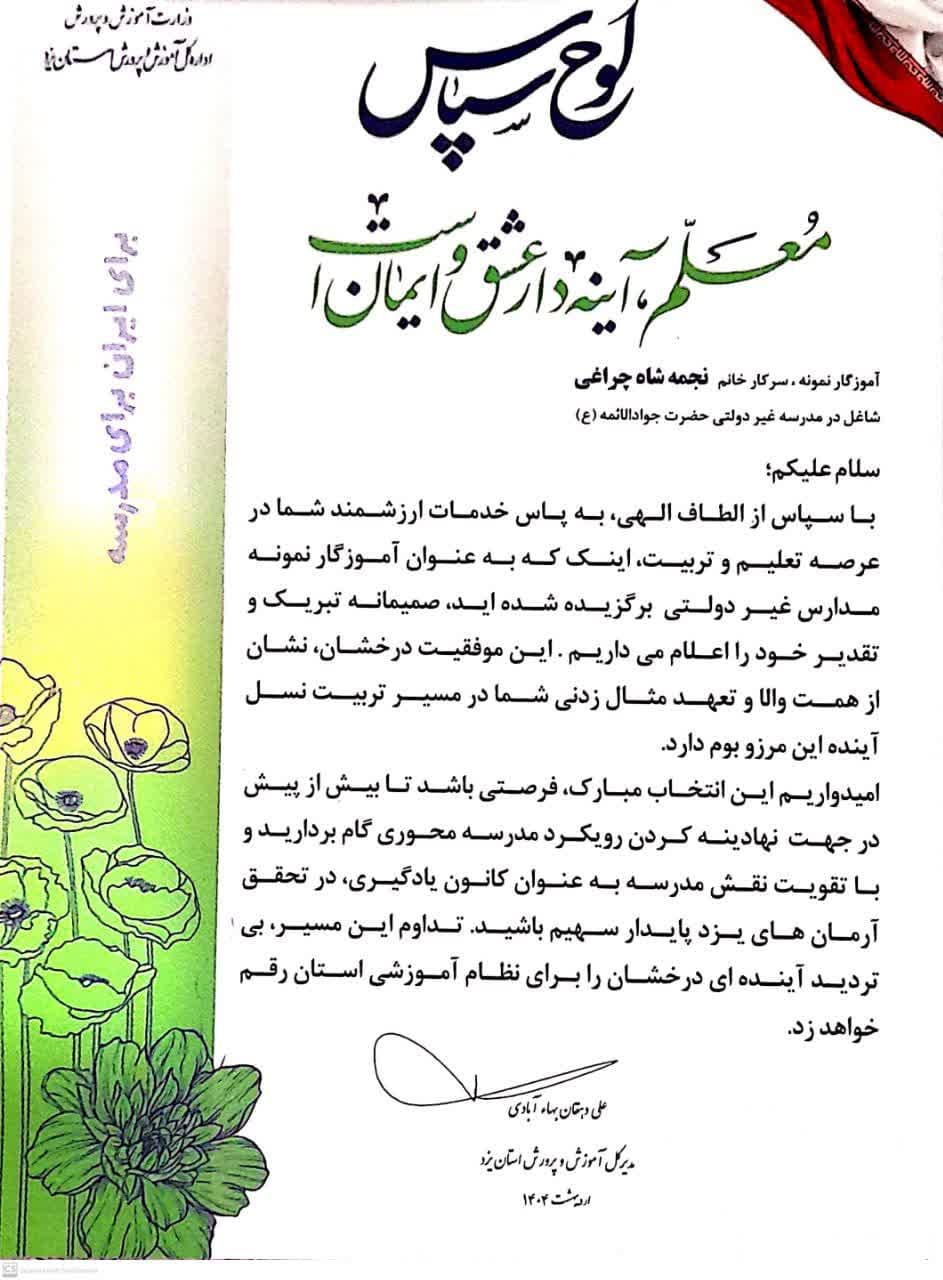 وزارت آموزش و پرورش
اداره کل آموزش و پرورش استان یزد
لوح سپاس
معلّم، آینه دار عشق و ایمان است
برای ایران برای مدرسه
آموزگار نمونه ، سرکار خانم نجمه شاه چراغی
شاغل در مدرسه غیر دولتی حضرت جوادالائمه (ع)
سلام علیکم؛
با سپاس از الطاف الهی، به پاس خدمات ارزشمند شما در
عرصه تعلیم و تربیت، اینک که به عنوان آموزگار نمونه
مدارس غیر دولتی برگزیده شده اید، صمیمانه تبریک و
تقدیر خود را اعلام می داریم . این موفقیت درخشان، نشان
از همت والا و تعهد مثال زدنی شما در مسیر تربیت نسل
آینده این مرزو بوم دارد.
امیدواریم این انتخاب مبارک، فرصتی باشد تا بیش از پیش
در جهت نهادینه کردن رویکرد مدرسه محوری گام بردارید و
با تقویت نقش مدرسه به عنوان کانون یادگیری، در تحقق
آرمان های یزد پایدار سهیم باشید. تداوم این مسیر، بی
تردید آینده ای درخشان را برای نظام آموزشی استان رقم
خواهد زد.
علی دهقان بهاء آبادی
مدیرکل آموزش و پرورش استان یزد
اردیبهشت ۱۴۰۴
CS